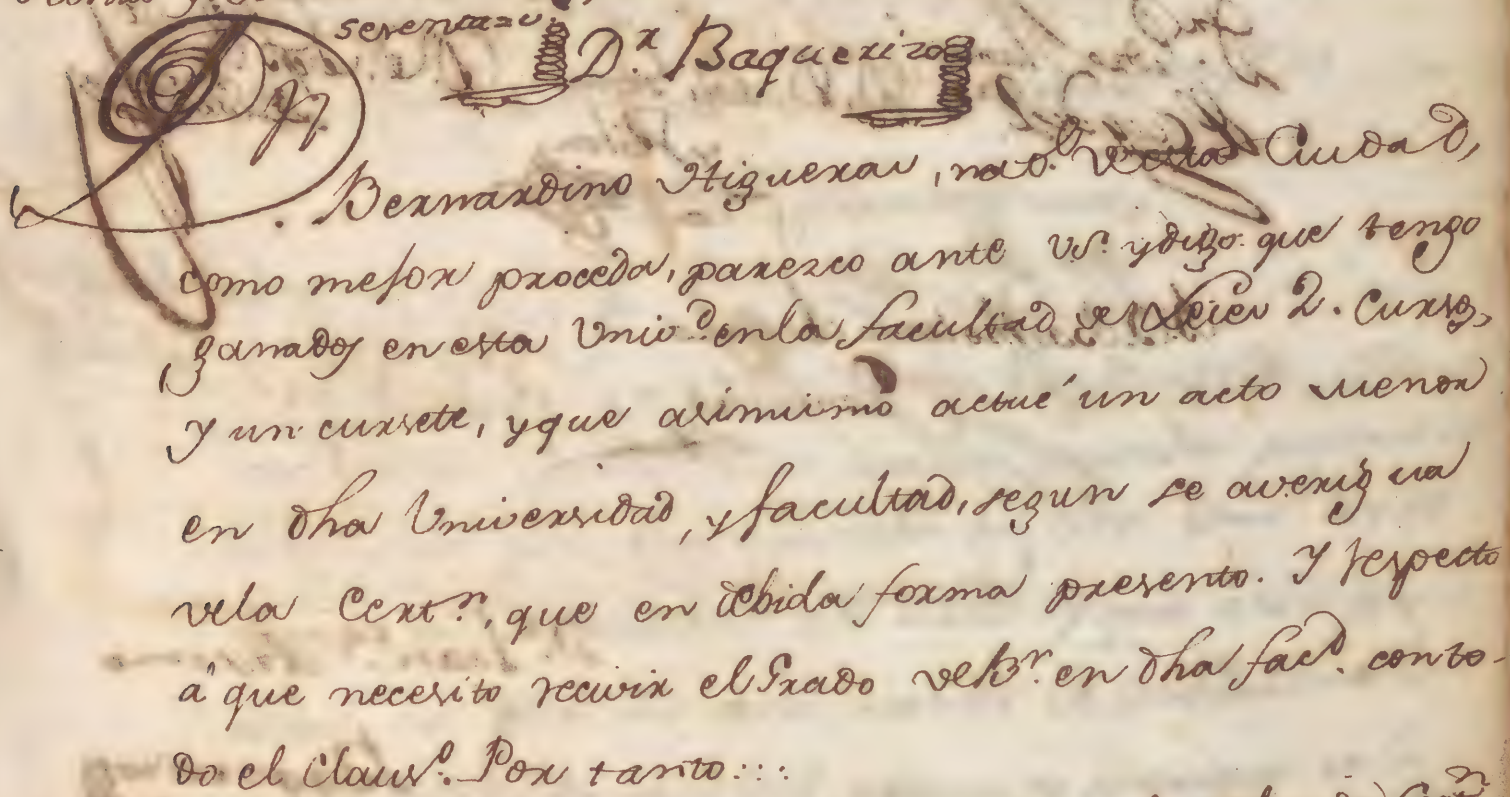 D.r Baquerizo
Bernardino Higueras, nat.l de esta Ciudad,
como mejor proceda, parezco ante VS.a y digo que tengo
ganados en esta Univ.d en la facultad de Leies 2. cursos,
y un cursete, y que asimismo actué un acto menor
en dha Universidad, y facultad, segun se averigua
de la Cert.n, que en debida forma presento. Y respecto
á que necesito recivir el Grado de B.r en dha fac.d con to-
do el Claus.o. Por tanto:::